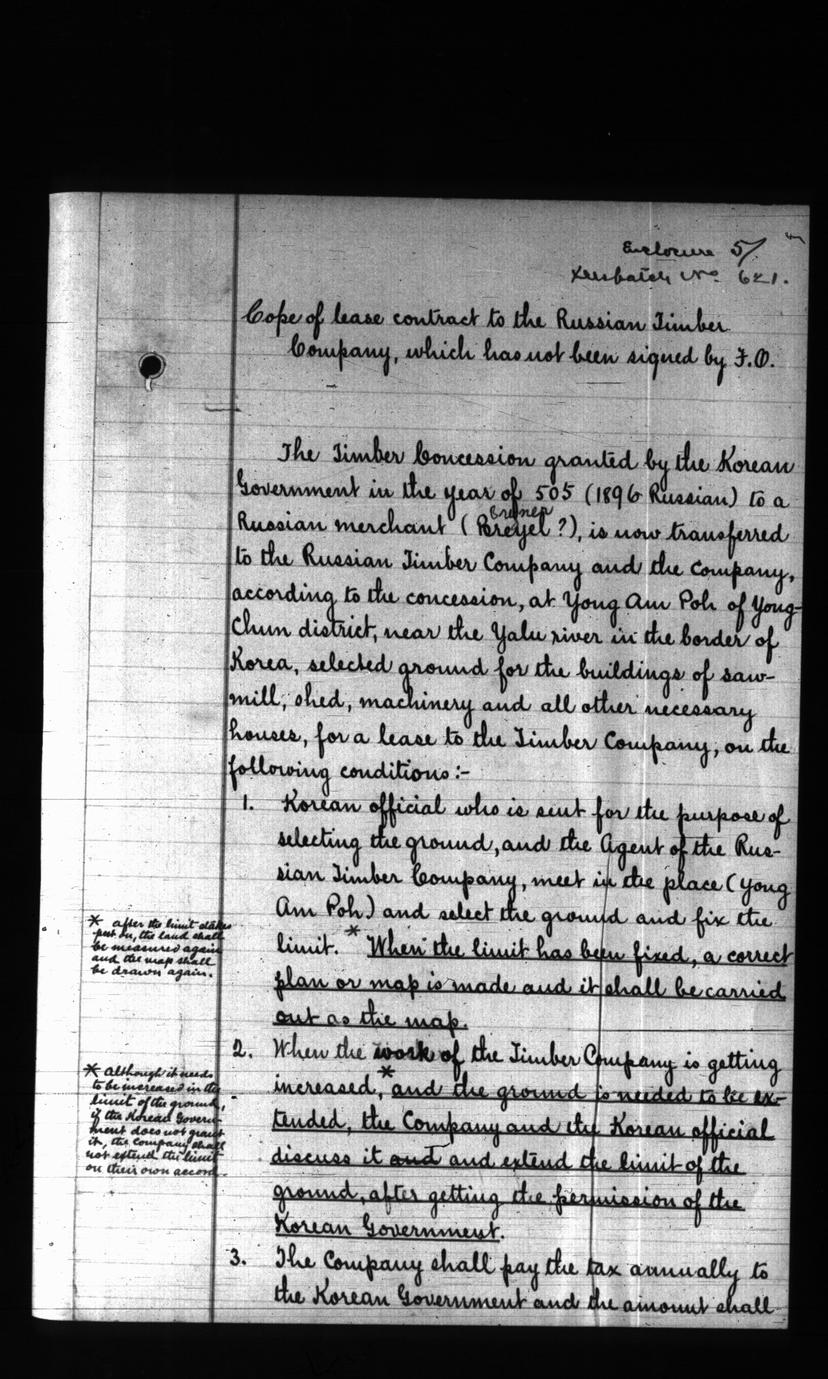 Enclosure 5/
Despatch No. 621.
Cope of lease contract to the Russian Timber
Company, which has not been signed by F.O.
The Timber Concession granted by the Korean
Government in the year of 505 (1896 Russian) to a
Russian merchant (Breyel ?), is now transferred
to the Russian Timber Company and the Company,
according to the concession, at Yong Am Poh of Yong-
Chun district, near the Yalu river in the border of
Korea, selected ground for the buildings of saw-
mill, shed, machinery and all other necessary
houses, for a lease to the Timber Company, on the
following conditions:-
1. Korean official who is sent for the purpose of
selecting the ground, and the Agent of the Rus-
sian Timber Company, meet in the place (Yong
Am Poh) and select the ground and fix the
limit.* When the limit has been fixed, a correct
plan or map is made and it shall be carried
out as the map.
* after the limit stakes
put on, the land shall
be measured again
and the map shall
be drawn again.
2. When the work of the Timber Company is getting
increased,* and the ground is needed to be ex-
tended, the Company and the Korean official
discuss it and and extend the limit of the
ground, after getting the permission of the
Korean Government.
* Although it needs
to be increased in the
limit of the ground,
if the Korean Govern-
ment does not grant
it, the Company shall
not extend the limit
on their own accord.
3. The Company shall pay the tax annually to
the Korean Government and the amount shall